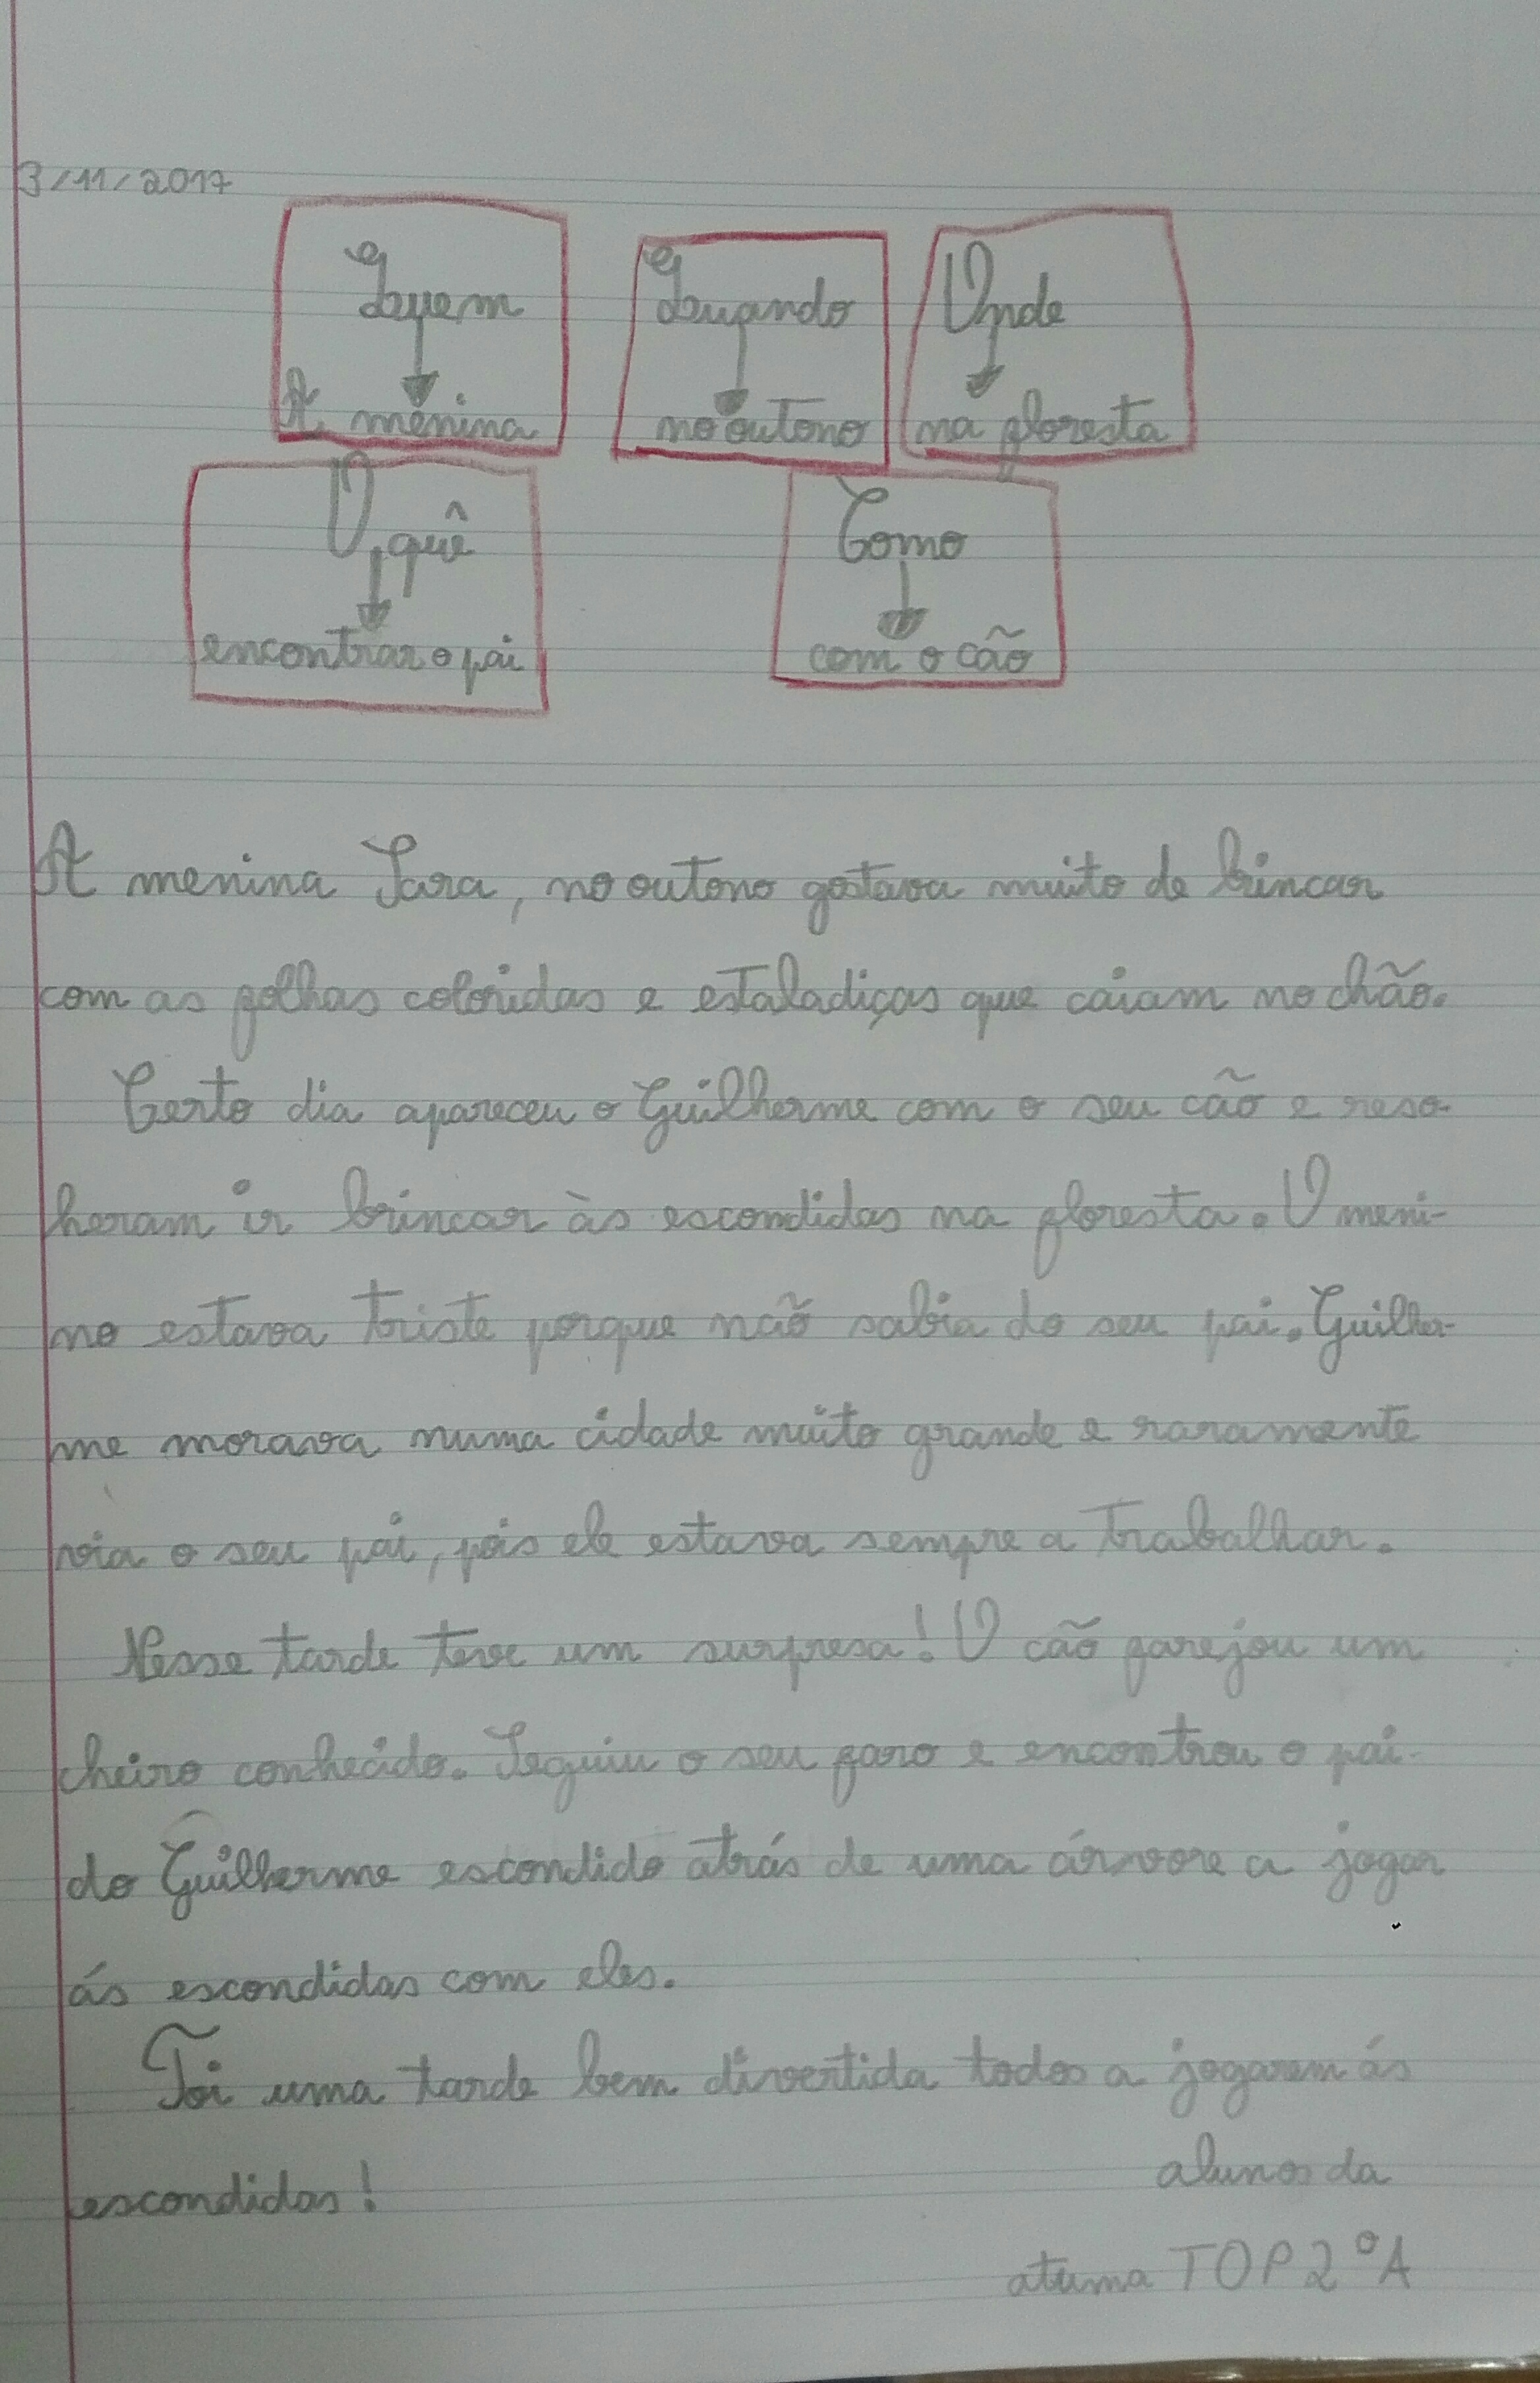 3/11/2017
Quem
A menina
Quando
no outono
Onde
na floresta
O quê
encontrar o pai
Como
com o cão
A menina Sara, no outono gostava muito de brincar
com as folhas coloridas e estaladiças que caiam no chão.
Certo dia apareceu o Guilherme com o seu cão e reso-
heram ir brincar às escondidas na floresta. O meni-
no estava triste porque não sabia do seu pai. Guilher-
me morava numa cidade muito grande e raramente
via o seu pai, pois ele estava sempre a trabalhar.
Nesse tarde teve um surpresa! O cão farejou um
cheiro conhecido. Seguiu o seu faro e encontrou o pai
do Guilherme escondido atrás de uma árvore a jogar
ás escondidas com eles.
Foi uma tarde bem divertida todos a jogarem ás
escondidas!
alunos da
atuma TOP 2ºA